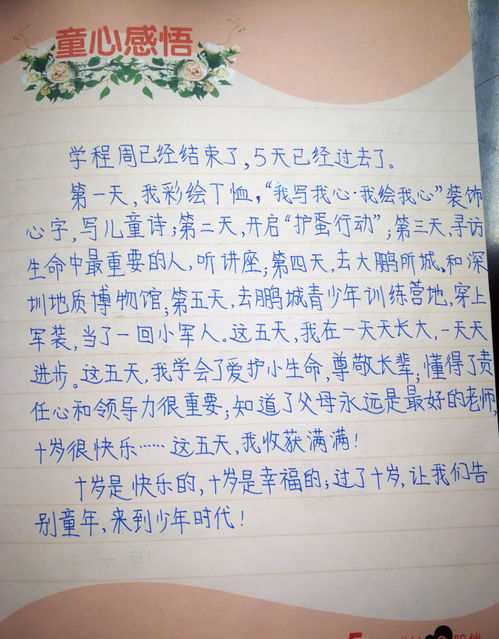 童心感悟
学程周已经结束了，5天已经过去了。
第一天，我彩绘T恤，“我写我心·我绘我心”装饰
心字，写儿童诗；第二天，开启“护蛋行动”；第三天，寻访
生命中最重要的人，听讲座；第四天，去大鹏所城、和深
圳地质博物馆；第五天，去鹏城青少年训练营地，穿上
军装，当了一回小军人。这五天，我在一天天长大，一天天
进步。这五天，我学会了爱护小生命，尊敬长辈；懂得了责
任心和领导力很重要；知道了父母永远是最好的老师
十岁很快乐……这五天，我收获满满！
十岁是快乐的，十岁是幸福的；过了十岁，让我们告
别童年，来到少年时代！
陪伴